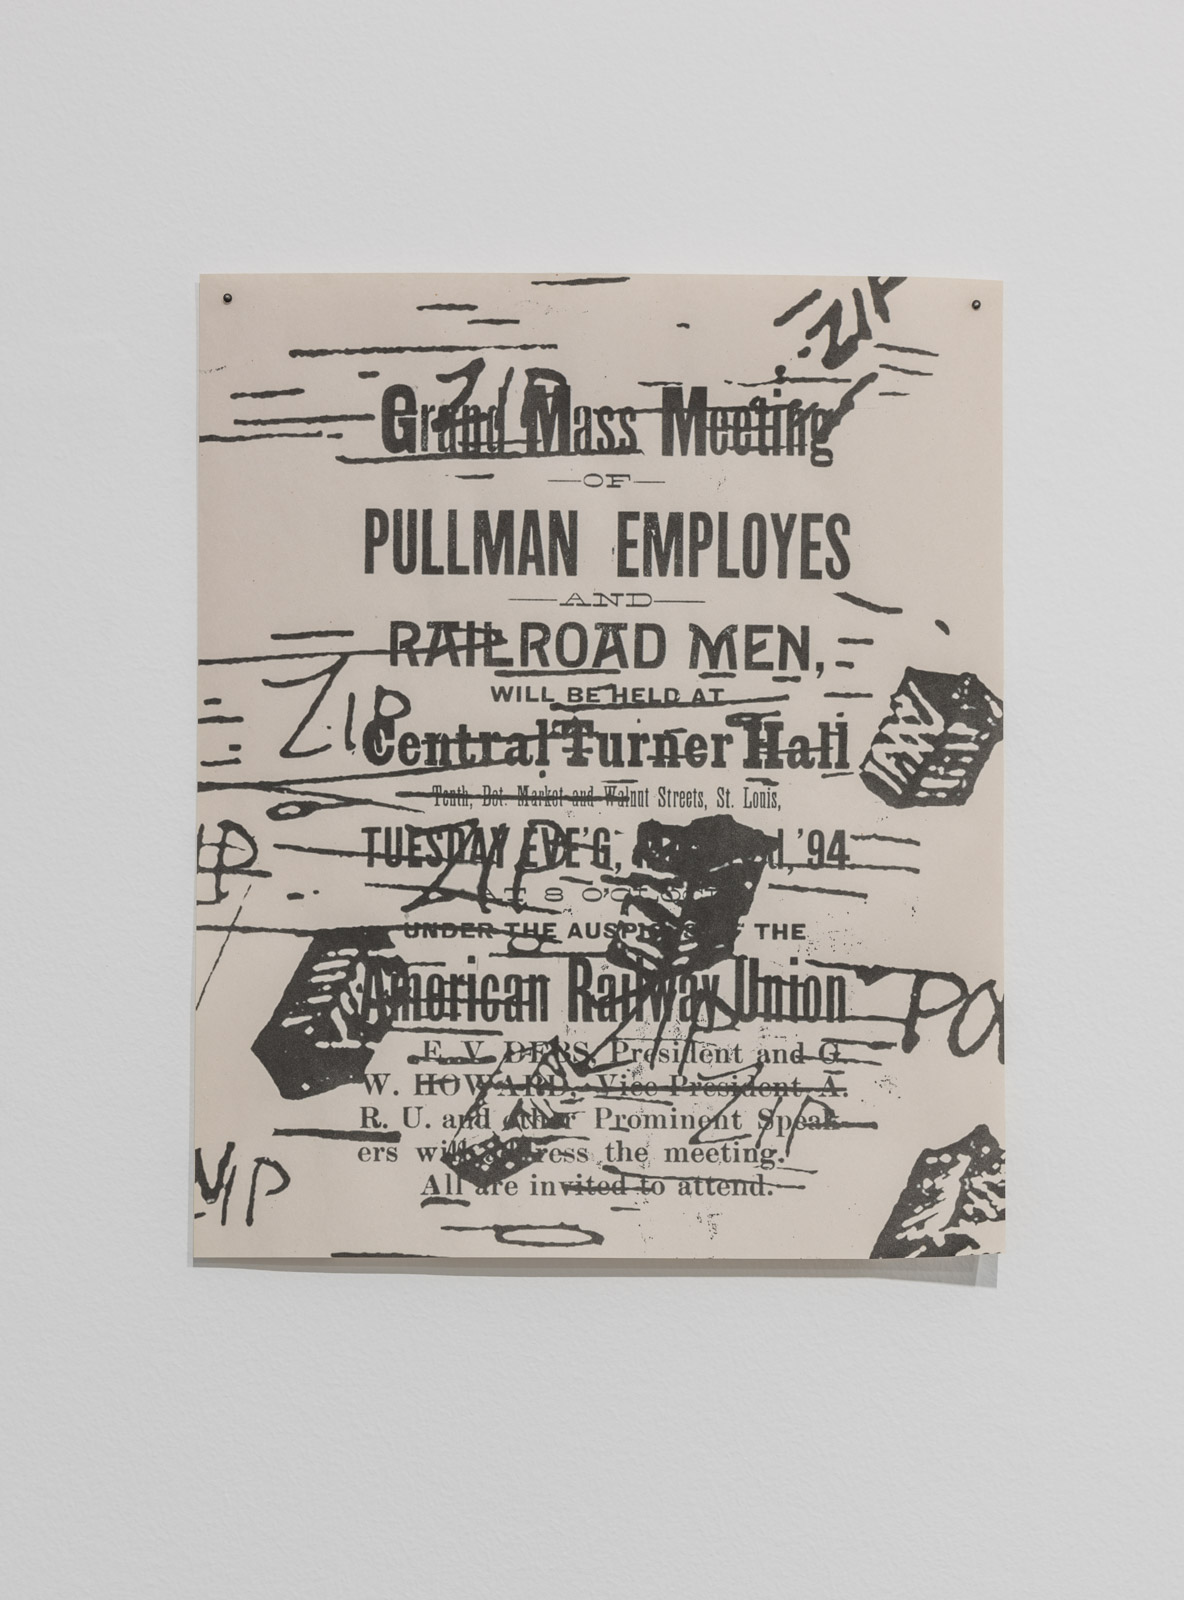 ZIP
ZIP
Grand Mass Meeting
OF
PULLMAN EMPLOYES
AND
RAILROAD MEN,
WILL BE HELD AT
ZIP
Central Turner Hall
Tenth, Bet. Market and Walnut Streets, St. Louis,
TUESDAY EVE'G, '94
ZIP
AT 8 O'CLOCK
UNDER THE AUSPICES OF THE
American Railway Union
E. V. DEBS, President and G.
W. HOWARD, Vice President A.
R. U. and other Prominent Speak-
ZIP
ers will address the meeting.
All are invited to attend.